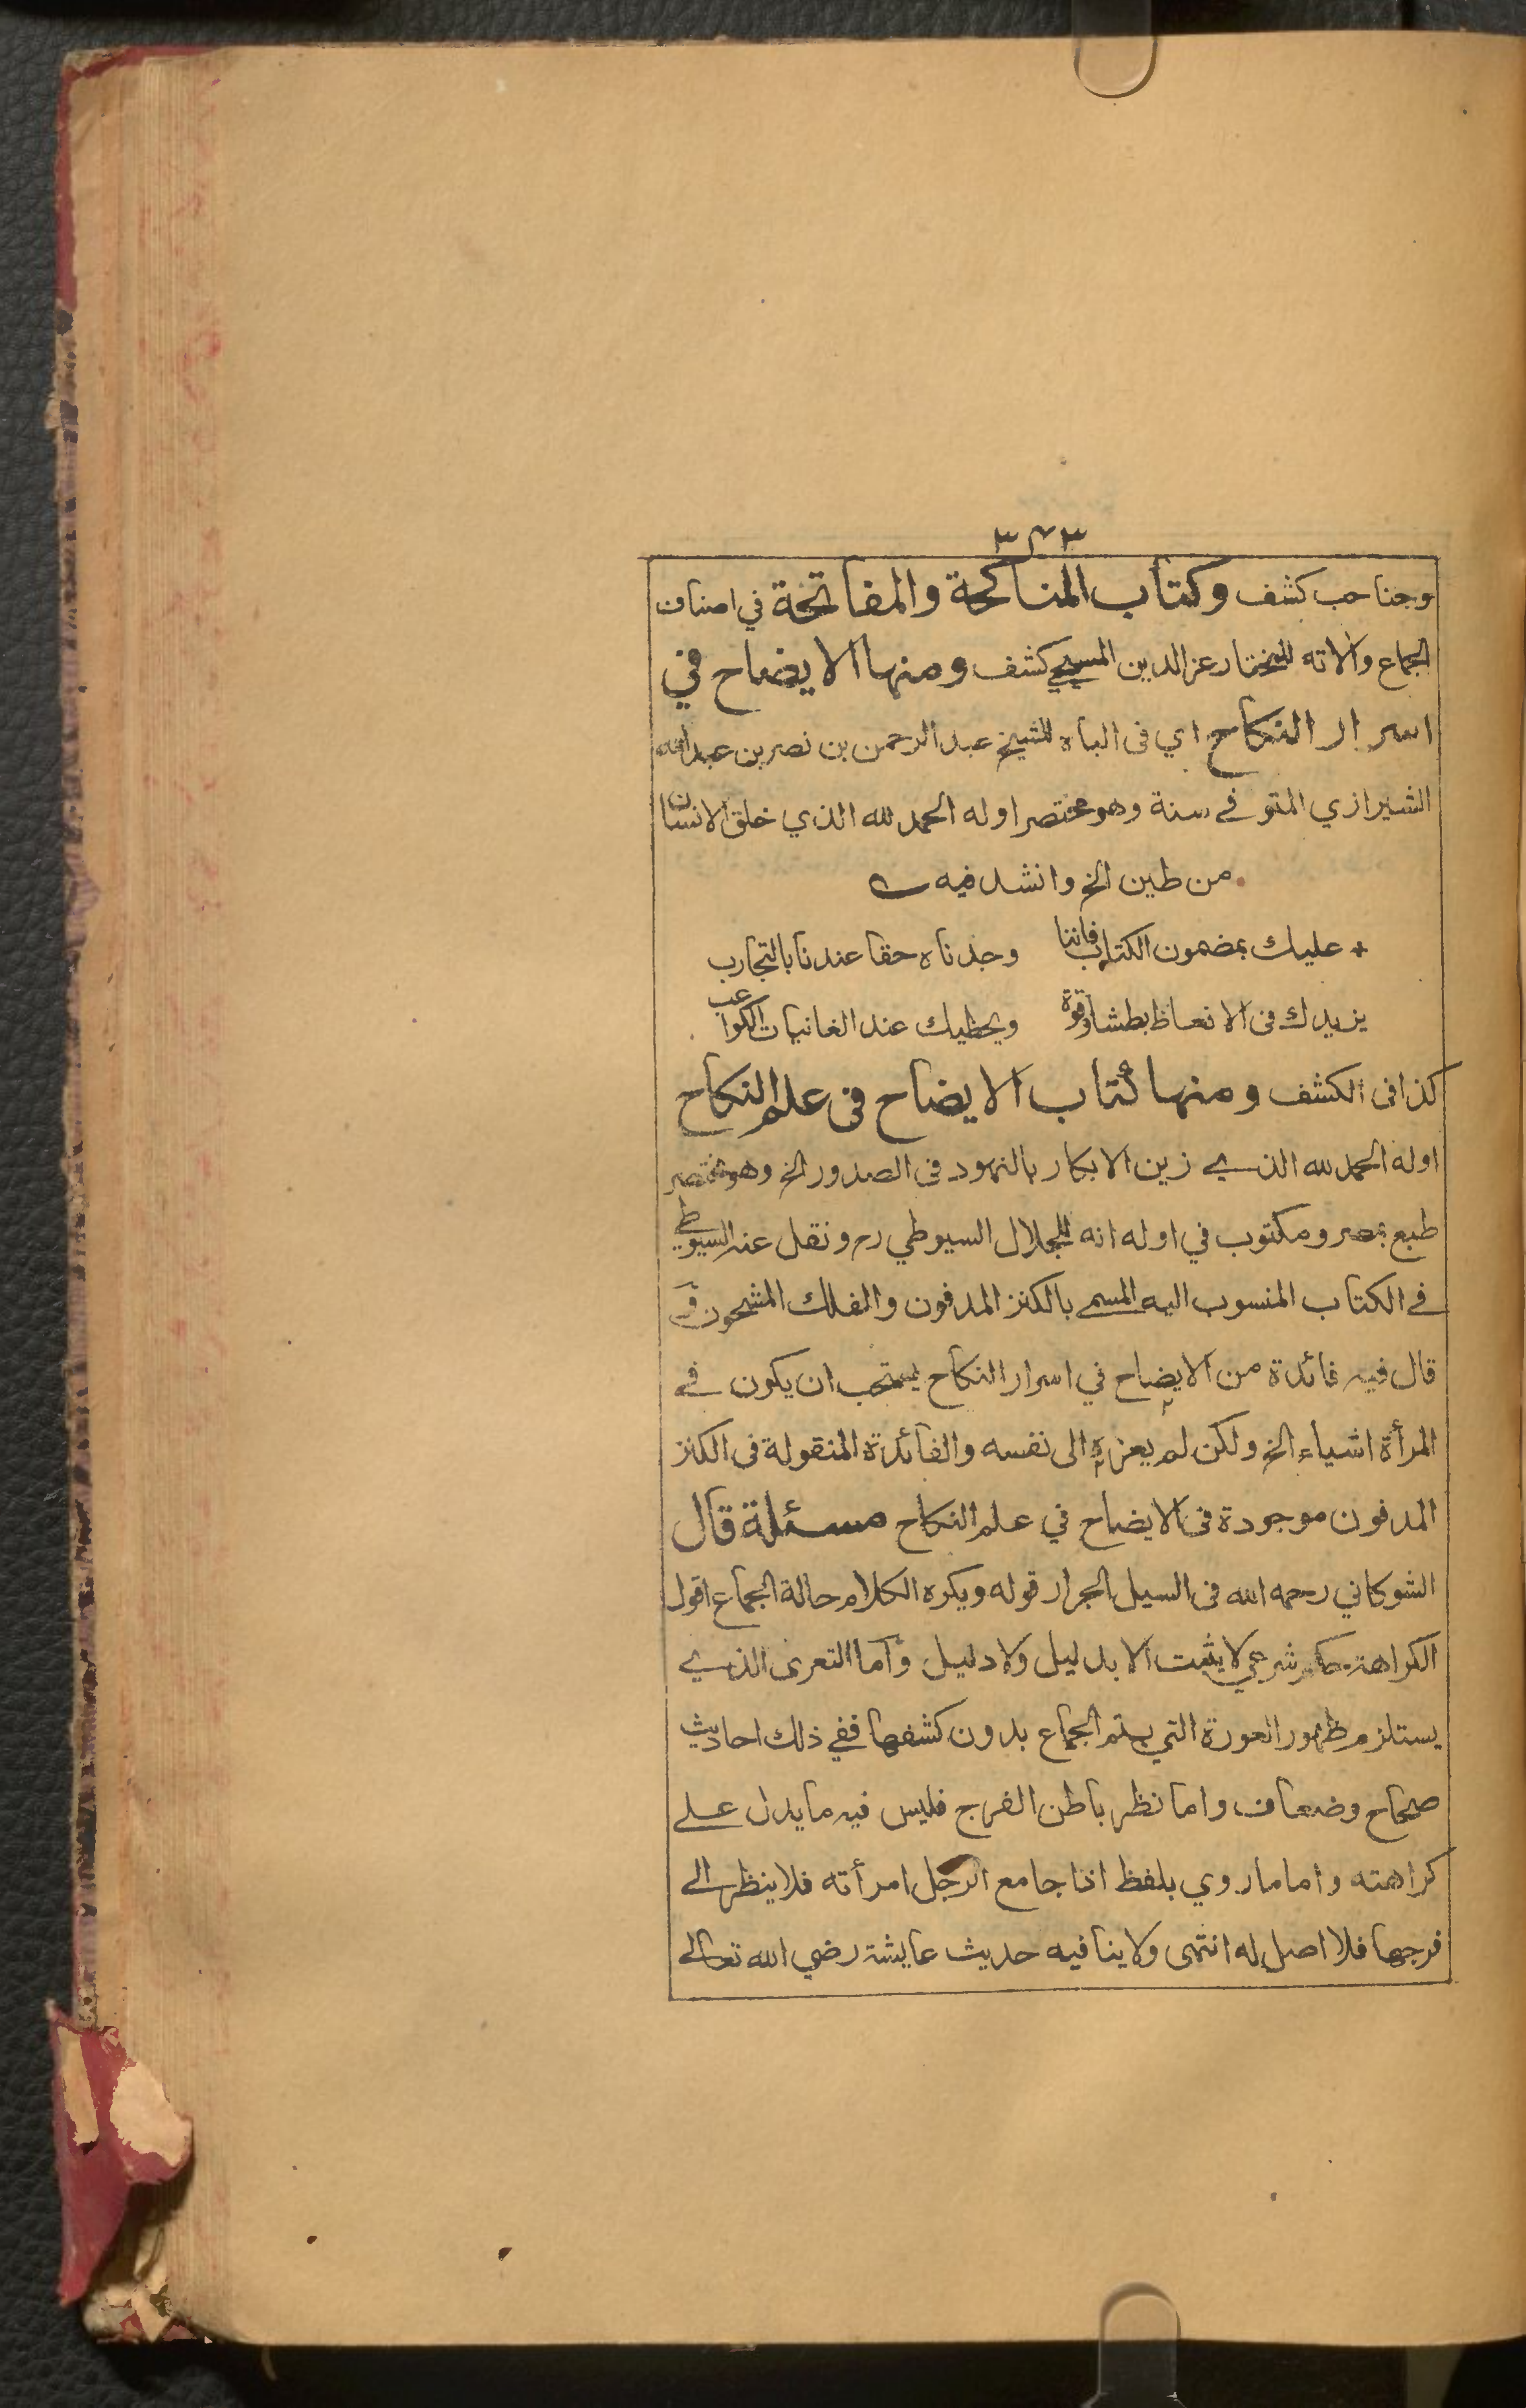 ٣٢٣
وجناحب كشف وكتاب المناكحة والمفاتحة في اصناف
الجماع والاته للمختار عز الدين المسبحي كشف ومنها الايضاح في
اسرار النكاح اي فى الباه للشيخ عبد الرحمن بن نصر بن عبد الله
الشيرازي المتوفے سنة وهو مختصر اوله الحمد لله الذي خلق الانسان
من طين الخ وانشد فيه
عليك بمضمون الكتاب فاننا وجدناه حقا عندنا بالتجارب
يزيدك فى الانعاظ بطشا وقوة ويحظيك عند الغانيات الكواعب
كذا فى الكشف ومنها كتاب الايضاح فى علم النكاح
اوله الحمد لله الذي زين الابكار بالنهود فى الصدور الخ وهو مختصر
طبع بمصر ومكتوب في اوله انه للجلال السيوطي رح ونقل عنه السيوطي
فے الكتاب المنسوب اليه المسمے بالكنز المدفون والفلك المشحون
قال فيه فائدة من الايضاح في اسرار النكاح يستحب ان يكون فے
المرأة اشياء الخ ولكن لم يعزه الى نفسه والفائدة المنقولة فى الكنز
المدفون موجودة فى الايضاح في علم النكاح مسئلة قال
الشوكاني رحمه الله فى السيل الجرار قوله ويكره الكلام حالة الجماع اقول
الكراهة حكم شرعي لا يثبت الا بدليل ولا دليل واما التعرى الذي
يستلزم ظهور العورة التي يتم الجماع بدون كشفها ففي ذلك احاديث
صحاح وضعاف واما نظر باطن الفرج فليس فيه ما يدل علے
كراهته واما ما روي بلفظ اذا جامع الرجل امرأته فلا ينظر الے
فرجها فلا اصل له انتهى ولا ينافيه حديث عايشة رضي الله تعالے